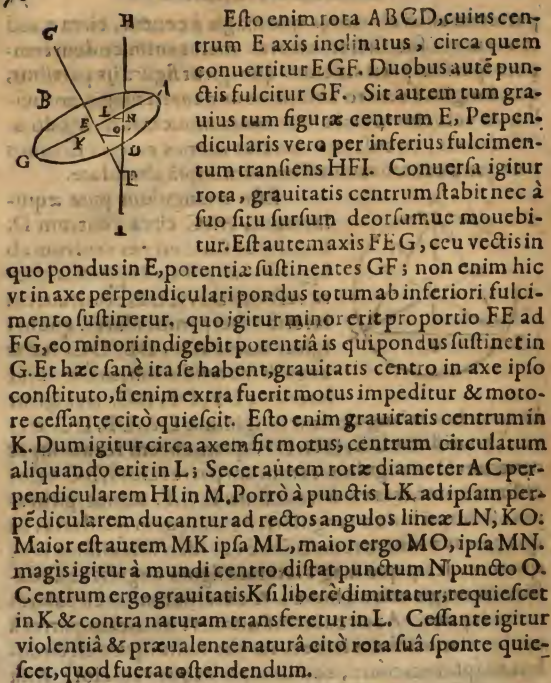 H
C
A
B
L
N
E
O
K
D
G
F
I
Esto enim rota ABCD, cuius cen-
trum E axis inclinatus, circa quem
conuertitur EGF. Duobus autẽ pun-
ctis fulcitur GF. Sit autem tum gra-
uius tum figuræ centrum E, Perpen-
dicularis vero per inferius fulcimen-
tum transiens HFI. Conuersa igitur
rota, grauitatis centrum stabit nec à
suo situ sursum deorsumue mouebi-
tur. Est autem axis FEG, ceu vectis in
quo pondus in E, potentiæ sustinentes GF; non enim hic
vt in axe perpendiculari pondus totum ab inferiori fulci-
mento sustinetur. quo igitur minor erit proportio FE ad
FG, eo minori indigebit potentiâ is qui pondus sustinet in
G. Et hæc sanè ita se habent, grauitatis centro in axe ipso
constituto, si enim extra fuerit motus impeditur & moto-
re cessante citò quiescit. Esto enim grauitatis centrum in
K. Dum igitur circa axem fit motus, centrum circulatum
aliquando erit in L; Secet autem rotæ diameter AC per-
pendicularem HI in M. Porrò à punctis LK ad ipsam per-
pẽdicularem ducantur ad rectos angulos lineæ LN, KO.
Maior est autem MK ipsa ML, maior ergo MO, ipsa MN.
magis igitur à mundi centro distat punctum N puncto O.
Centrum ergo grauitatis K si liberè dimittatur, requiescet
in K & contra naturam transferetur in L. Cessante igitur
violentiâ & præualente naturâ citò rota suâ sponte quie-
scet, quod fuerat ostendendum.